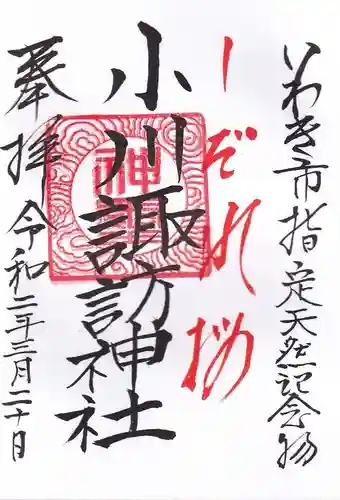 いわき市指定天然記念物
しだれ桜
小川諏訪神社
奉拝 令和二年三月二十日